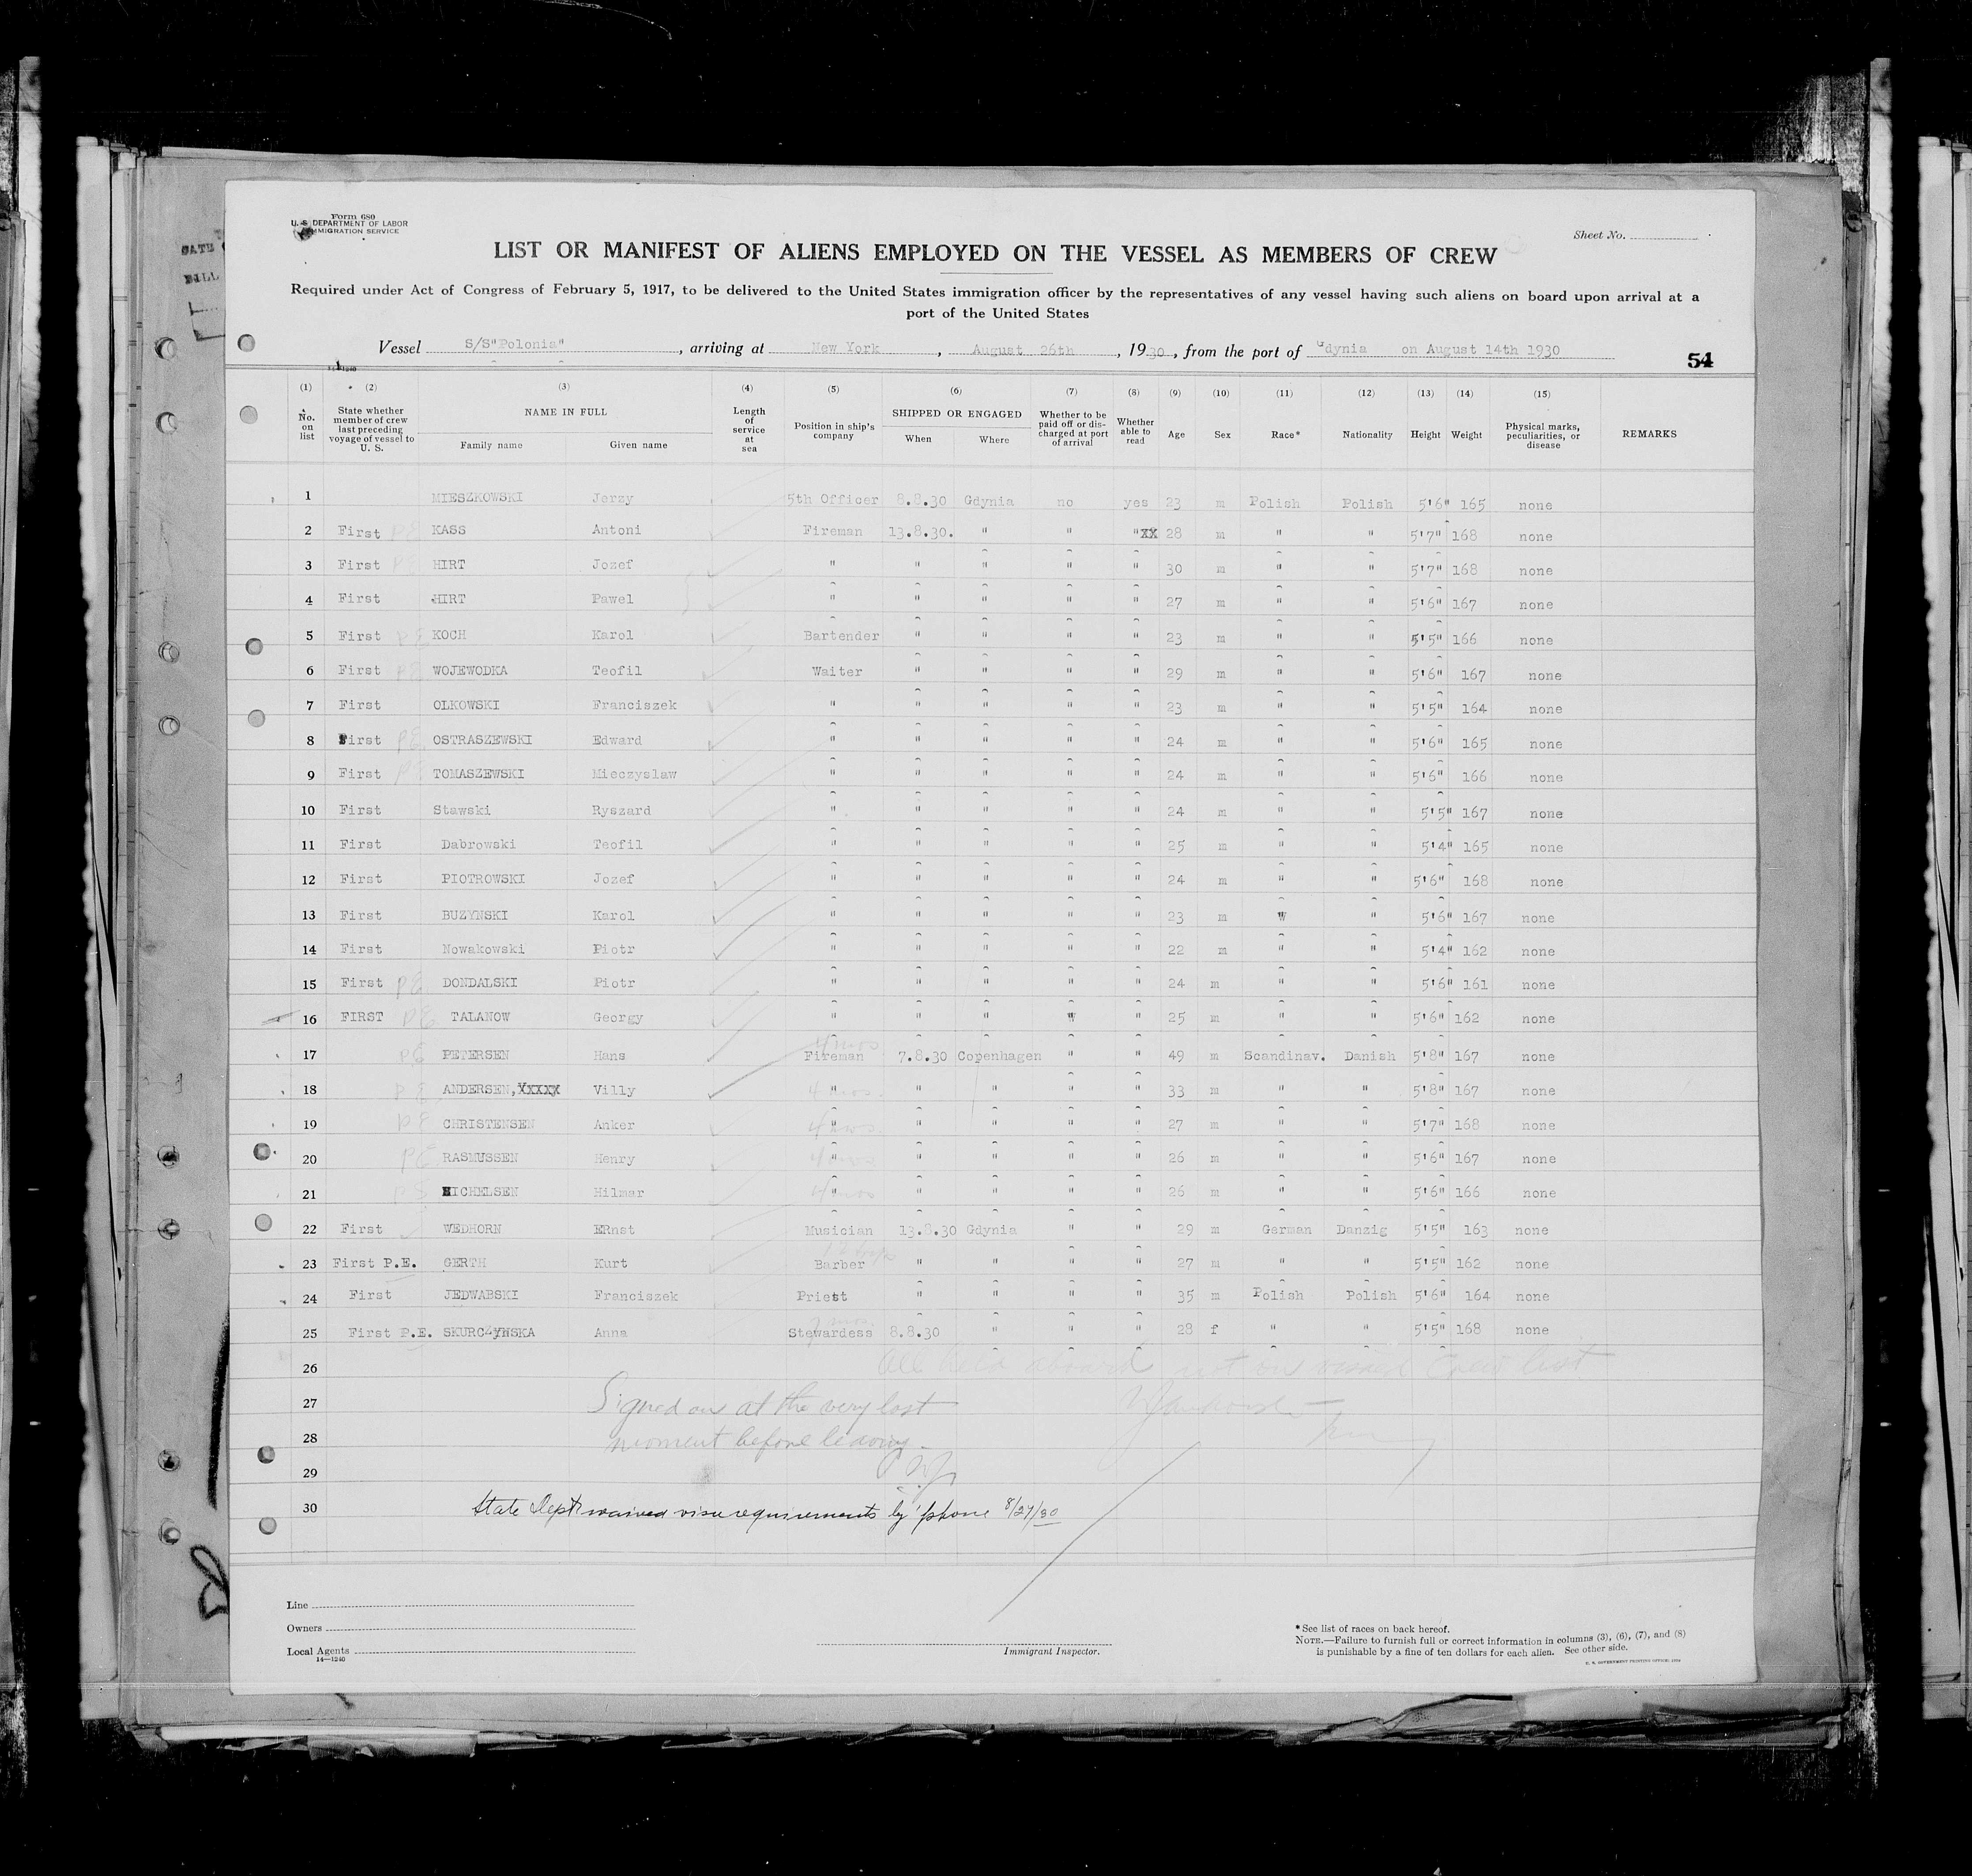 Form 680
U. S. DEPARTMENT OF LABOR
IMMIGRATION SERVICE
Sheet No.
LIST OR MANIFEST OF ALIENS EMPLOYED ON THE VESSEL AS MEMBERS OF CREW
Required under Act of Congress of February 5, 1917, to be delivered to the United States immigration officer by the representatives of any vessel having such aliens on board upon arrival at a
port of the United States
Vessel S/S"Polonia", arriving at New York, August 26th, 1930, from the port of Gdynia on August 14th 1930
54
(1) (2) (3) (4) (5) (6) (7) (8) (9) (10) (11) (12) (13) (14) (15)
No. on list State whether member of crew last preceding voyage of vessel to U. S. NAME IN FULL Family name Given name Length of service at sea Position in ship's company SHIPPED OR ENGAGED When Where Whether to be paid off or discharged at port of arrival Whether able to read Age Sex Race* Nationality Height Weight Physical marks, peculiarities, or disease REMARKS
1 MIESZKOWSKI Jerzy 5th Officer 8.8.30 Gdynia no yes 23 m Polish Polish 5'6" 165 none
2 First PE KASS Antoni Fireman 13.8.30. " " "xx 28 m " " 5'7" 168 none
3 First PE HIRT Jozef " " " " " 30 m " " 5'7" 168 none
4 First HIRT Pawel " " " " " 27 m " " 5'6" 167 none
5 First PE KOCH Karol Bartender " " " " 23 m " " 5'5" 166 none
6 First PE WOJEWODKA Teofil Waiter " " " " 29 m " " 5'6" 167 none
7 First OLKOWSKI Franciszek " " " " " 23 m " " 5'5" 164 none
8 First PE OSTRASZEWSKI Edward " " " " " 24 m " " 5'6" 165 none
9 First PE TOMASZEWSKI Mieczyslaw " " " " " 24 m " " 5'6" 166 none
10 First Stawski Ryszard " " " " " 24 m " " 5'5" 167 none
11 First Dabrowski Teofil " " " " " 25 m " " 5'4" 165 none
12 First PIOTROWSKI Jozef " " " " " 24 m " " 5'6" 168 none
13 First BUZYNSKI Karol " " " " " 23 m " " 5'6" 167 none
14 First Nowakowski Piotr " " " " " 22 m " " 5'4" 162 none
15 First PE DONDALSKI Piotr " " " " " 24 m " " 5'6" 161 none
16 FIRST PE TALANOW Georgy " " " " " 25 m " " 5'6" 162 none
17 PE PETERSEN Hans 4 mos Fireman 7.8.30 Copenhagen " " 49 m Scandinav. Danish 5'8" 167 none
18 PE ANDERSEN,XXXXX Villy 4 mos. " " " " " 33 m " " 5'8" 167 none
19 PE CHRISTENSEN Anker 4 mos. " " " " " 27 m " " 5'7" 168 none
20 PE RASMUSSEN Henry 4 mos " " " " " 26 m " " 5'6" 167 none
21 PE MICHELSEN Hilmar 4 mos " " " " " 26 m " " 5'6" 166 none
22 First WEDHORN ERnst Musician 13.8.30 Gdynia " " 29 m German Danzig 5'5" 163 none
23 First P.E. GERTH Kurt Barber " " " " 27 m " " 5'5" 162 none
24 First JEDWABSKI Franciszek Priest " " " " 35 m Polish Polish 5'6" 164 none
25 First P.E. SKURCZYNSKA Anna Stewardess 8.8.30 " " " 28 f " " 5'5" 168 none
26 All held aboard not on visaed crew list
27 Signed on at the very last
28 moment before leaving.
29
30 State Dept waived visa requirements by 'phone 8/27/30
Line
Owners
Local Agents
14—1240
Immigrant Inspector.
*See list of races on back hereof.
NOTE.—Failure to furnish full or correct information in columns (3), (6), (7), and (8)
is punishable by a fine of ten dollars for each alien. See other side.